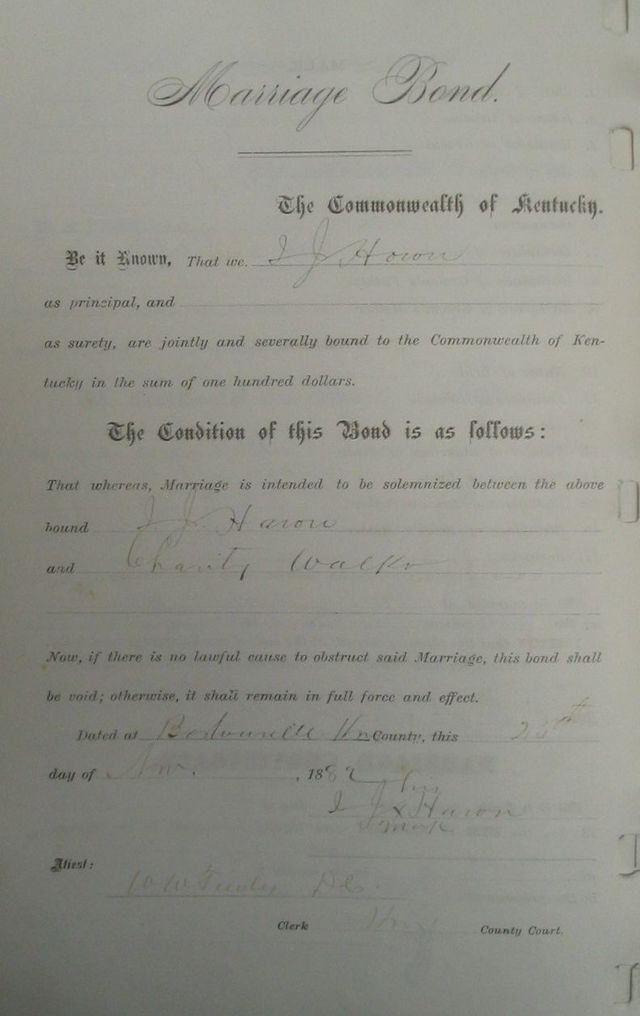 Marriage Bond.
The Commonwealth of Kentucky.
Be it Known, That we. J J
as principal, and
as surety, are jointly and severally bound to the Commonwealth of Ken-
tucky in the sum of one hundred dollars.
The Condition of this Bond is as follows:
That whereas, Marriage is intended to be solemnized between the above
bound J J
and Charity Walker
Now, if there is no lawful cause to obstruct said Marriage, this bond shall
be void; otherwise, it shall remain in full force and effect.
Dated at County, this
day of Nov. , 1882
his
J J x
mark
Attest:
W W
Clerk County Court.